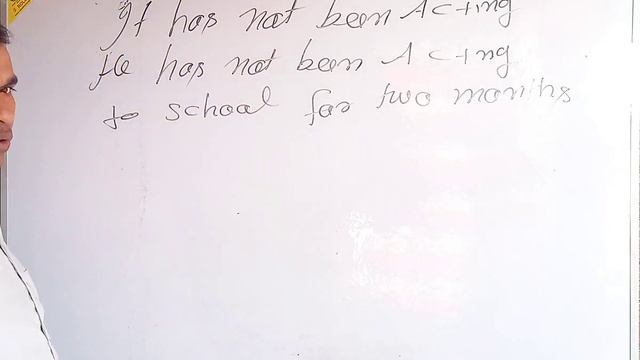 It has not been Acting
He has not been Acting
to school for two months